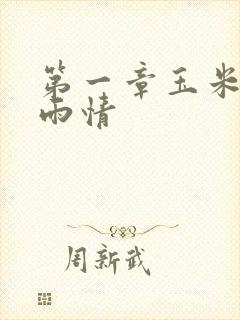 第一章玉米
雨情
周新武